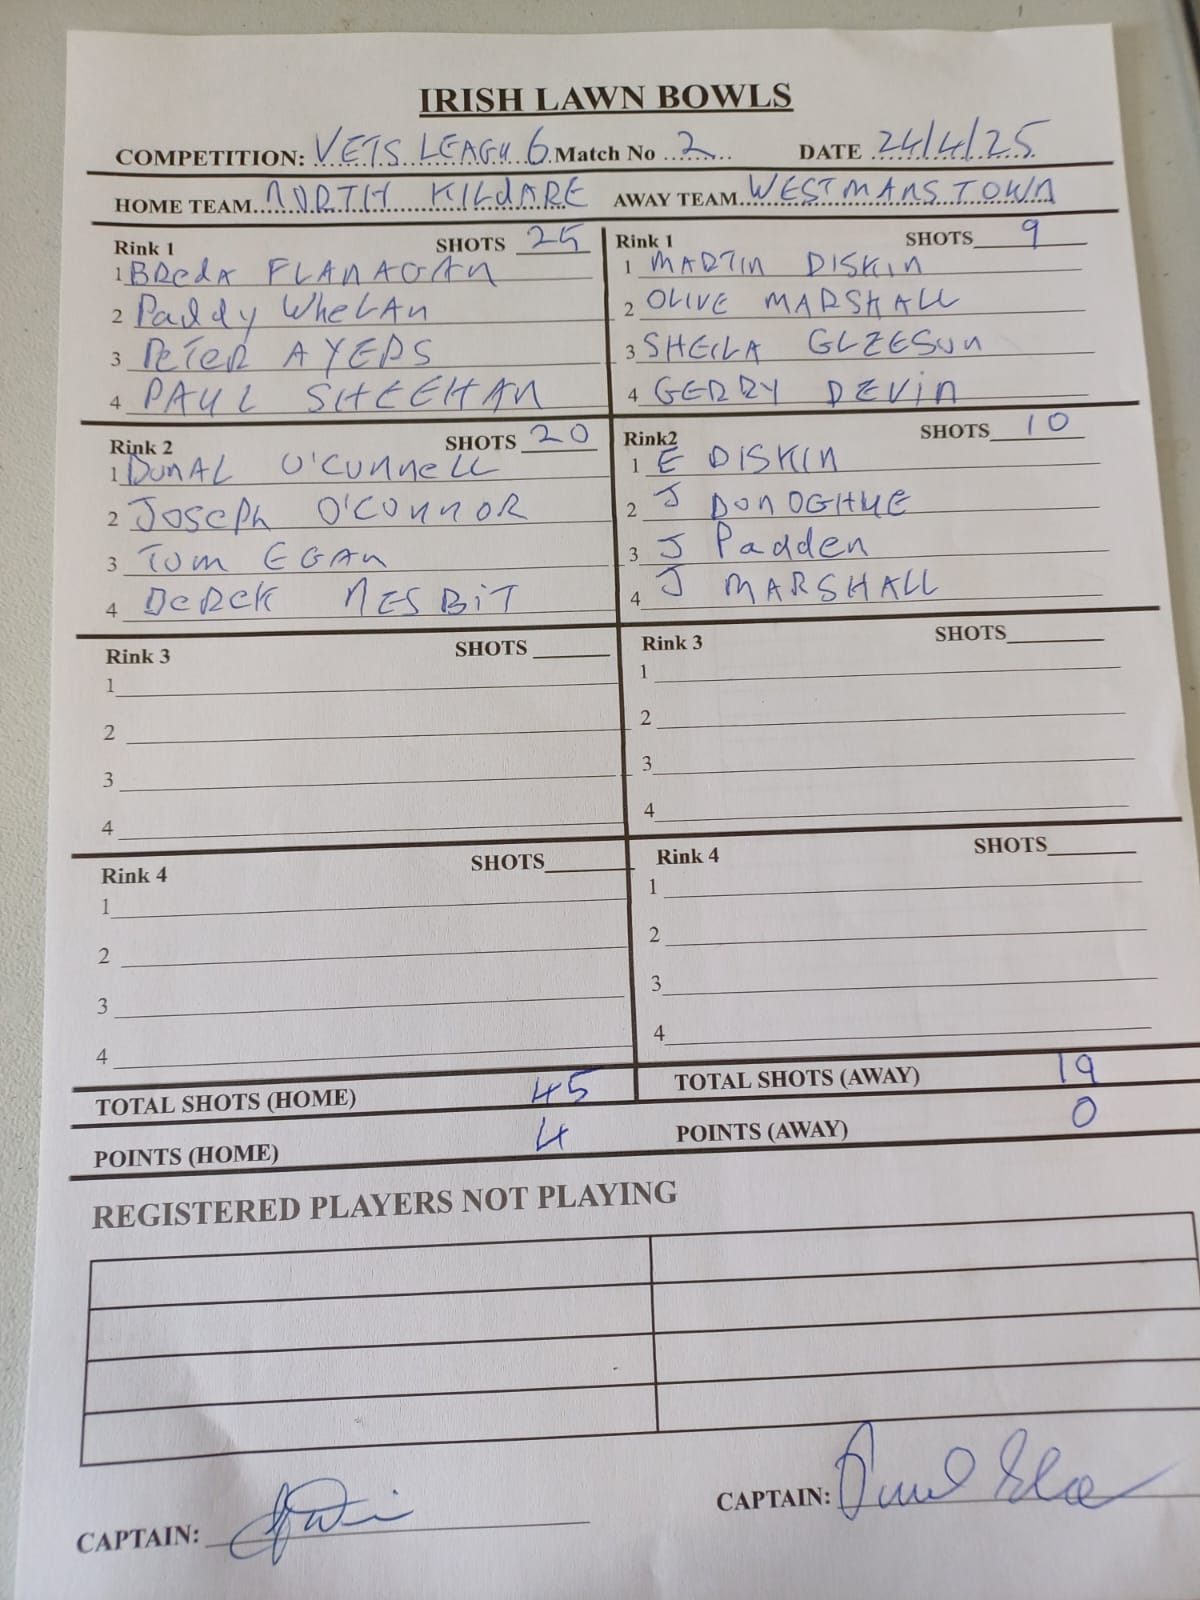 IRISH LAWN BOWLS
COMPETITION: VETS LEAGU 6 Match No 2 DATE 24/4/25
HOME TEAM NORTH KILDARE AWAY TEAM WESTMANSTOWN
Rink 1 SHOTS 25
1 BREDA FLANAGAN
2 Paddy Whelan
3 PETER AYERS
4 PAUL SHEEHAN
Rink 1 SHOTS 9
1 MARTIN DISKIN
2 OLIVE MARSHALL
3 SHEILA GLEESON
4 GERRY DEVIN
Rink 2 SHOTS 20
1 DONAL O'CONNELL
2 JOSEPH O'CONNOR
3 TOM EGAN
4 DEREK NESBIT
Rink2 SHOTS 10
1 E DISKIN
2 J DONOGHUE
3 J Padden
4 J MARSHALL
Rink 3 SHOTS
1
2
3
4
Rink 3 SHOTS
1
2
3
4
Rink 4 SHOTS
1
2
3
4
Rink 4 SHOTS
1
2
3
4
TOTAL SHOTS (HOME) 45 TOTAL SHOTS (AWAY) 19
POINTS (HOME) 4 POINTS (AWAY) 0
REGISTERED PLAYERS NOT PLAYING
CAPTAIN: CAPTAIN: